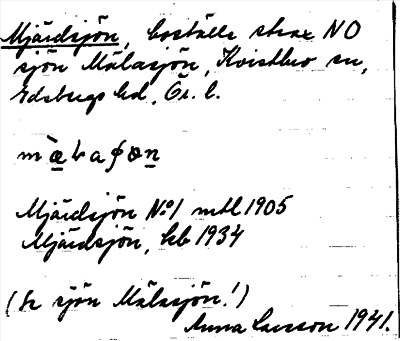 Mjärdsjön, boställe strax NO
sjön Mälasjön, Kvistbro sn,
Edsbergs hd, Ör. l.
Mjärdsjön No 1 mtl 1905
Mjärdsjön, kb 1934
(Se sjön Mälasjön!)
Anna Larsson 1941.